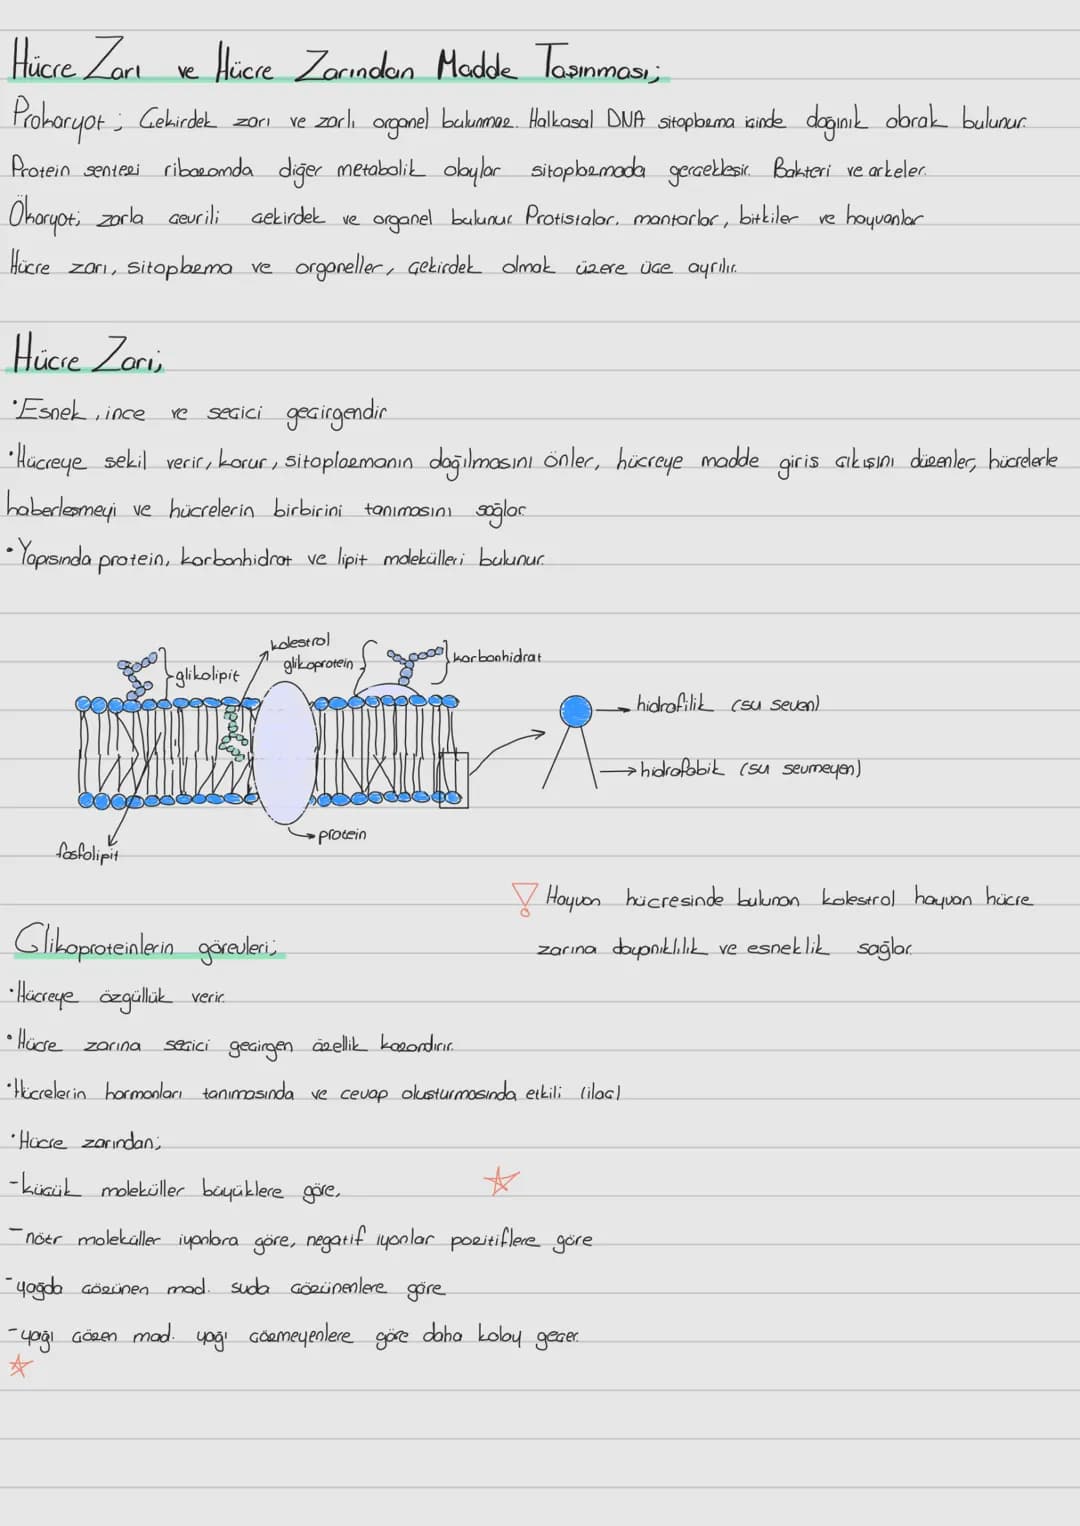 Hücre Zarı ve Hücre Zarından Madde Taşınması;
Prokaryot; Çekirdek zarı ve zarlı organel bulunmaz. Halkasal DNA sitoplazma içinde dağınık olarak bulunur.
Protein sentezi ribozomda diğer metabolik olaylar sitoplazmada gerçekleşir. Bakteri ve arkeler.
Ökaryot; zarla çevrili çekirdek ve organel bulunur Protistalar, mantarlar, bitkiler ve hayvanlar
Hücre zarı, sitoplazma ve organeller, çekirdek olmak üzere üçe ayrılır.
Hücre Zarı;
•Esnek, ince ve seçici geçirgendir
•Hücreye şekil verir, korur, sitoplazmanın dağılmasını önler, hücreye madde giriş çıkışını düzenler, hücrelerle
haberleşmeyi ve hücrelerin birbirini tanımasını sağlar
•Yapısında protein, karbonhidrat ve lipit molekülleri bulunur.
kolestrol
glikolipit
glikoprotein
karbonhidrat
hidrofilik (su seven)
hidrofobik (su sevmeyen)
protein
fosfolipit
Hayvan hücresinde bulunan kolestrol hayvan hücre
zarına dayanıklılık ve esneklik sağlar.
Glikoproteinlerin görevleri;
•Hücreye özgüllük verir.
•Hücre zarına seçici geçirgen özellik kazandırır.
•Hücrelerin hormonları tanımasında ve cevap oluşturmasında etkili (ilaç)
•Hücre zarından;
-küçük moleküller büyüklere göre,
-nötr moleküller iyonlara göre, negatif iyonlar pozitiflere göre
-yağda çözünen mad. suda çözünenlere göre
-yağı çözen mad. yağı çözmeyenlere göre daha kolay geçer.